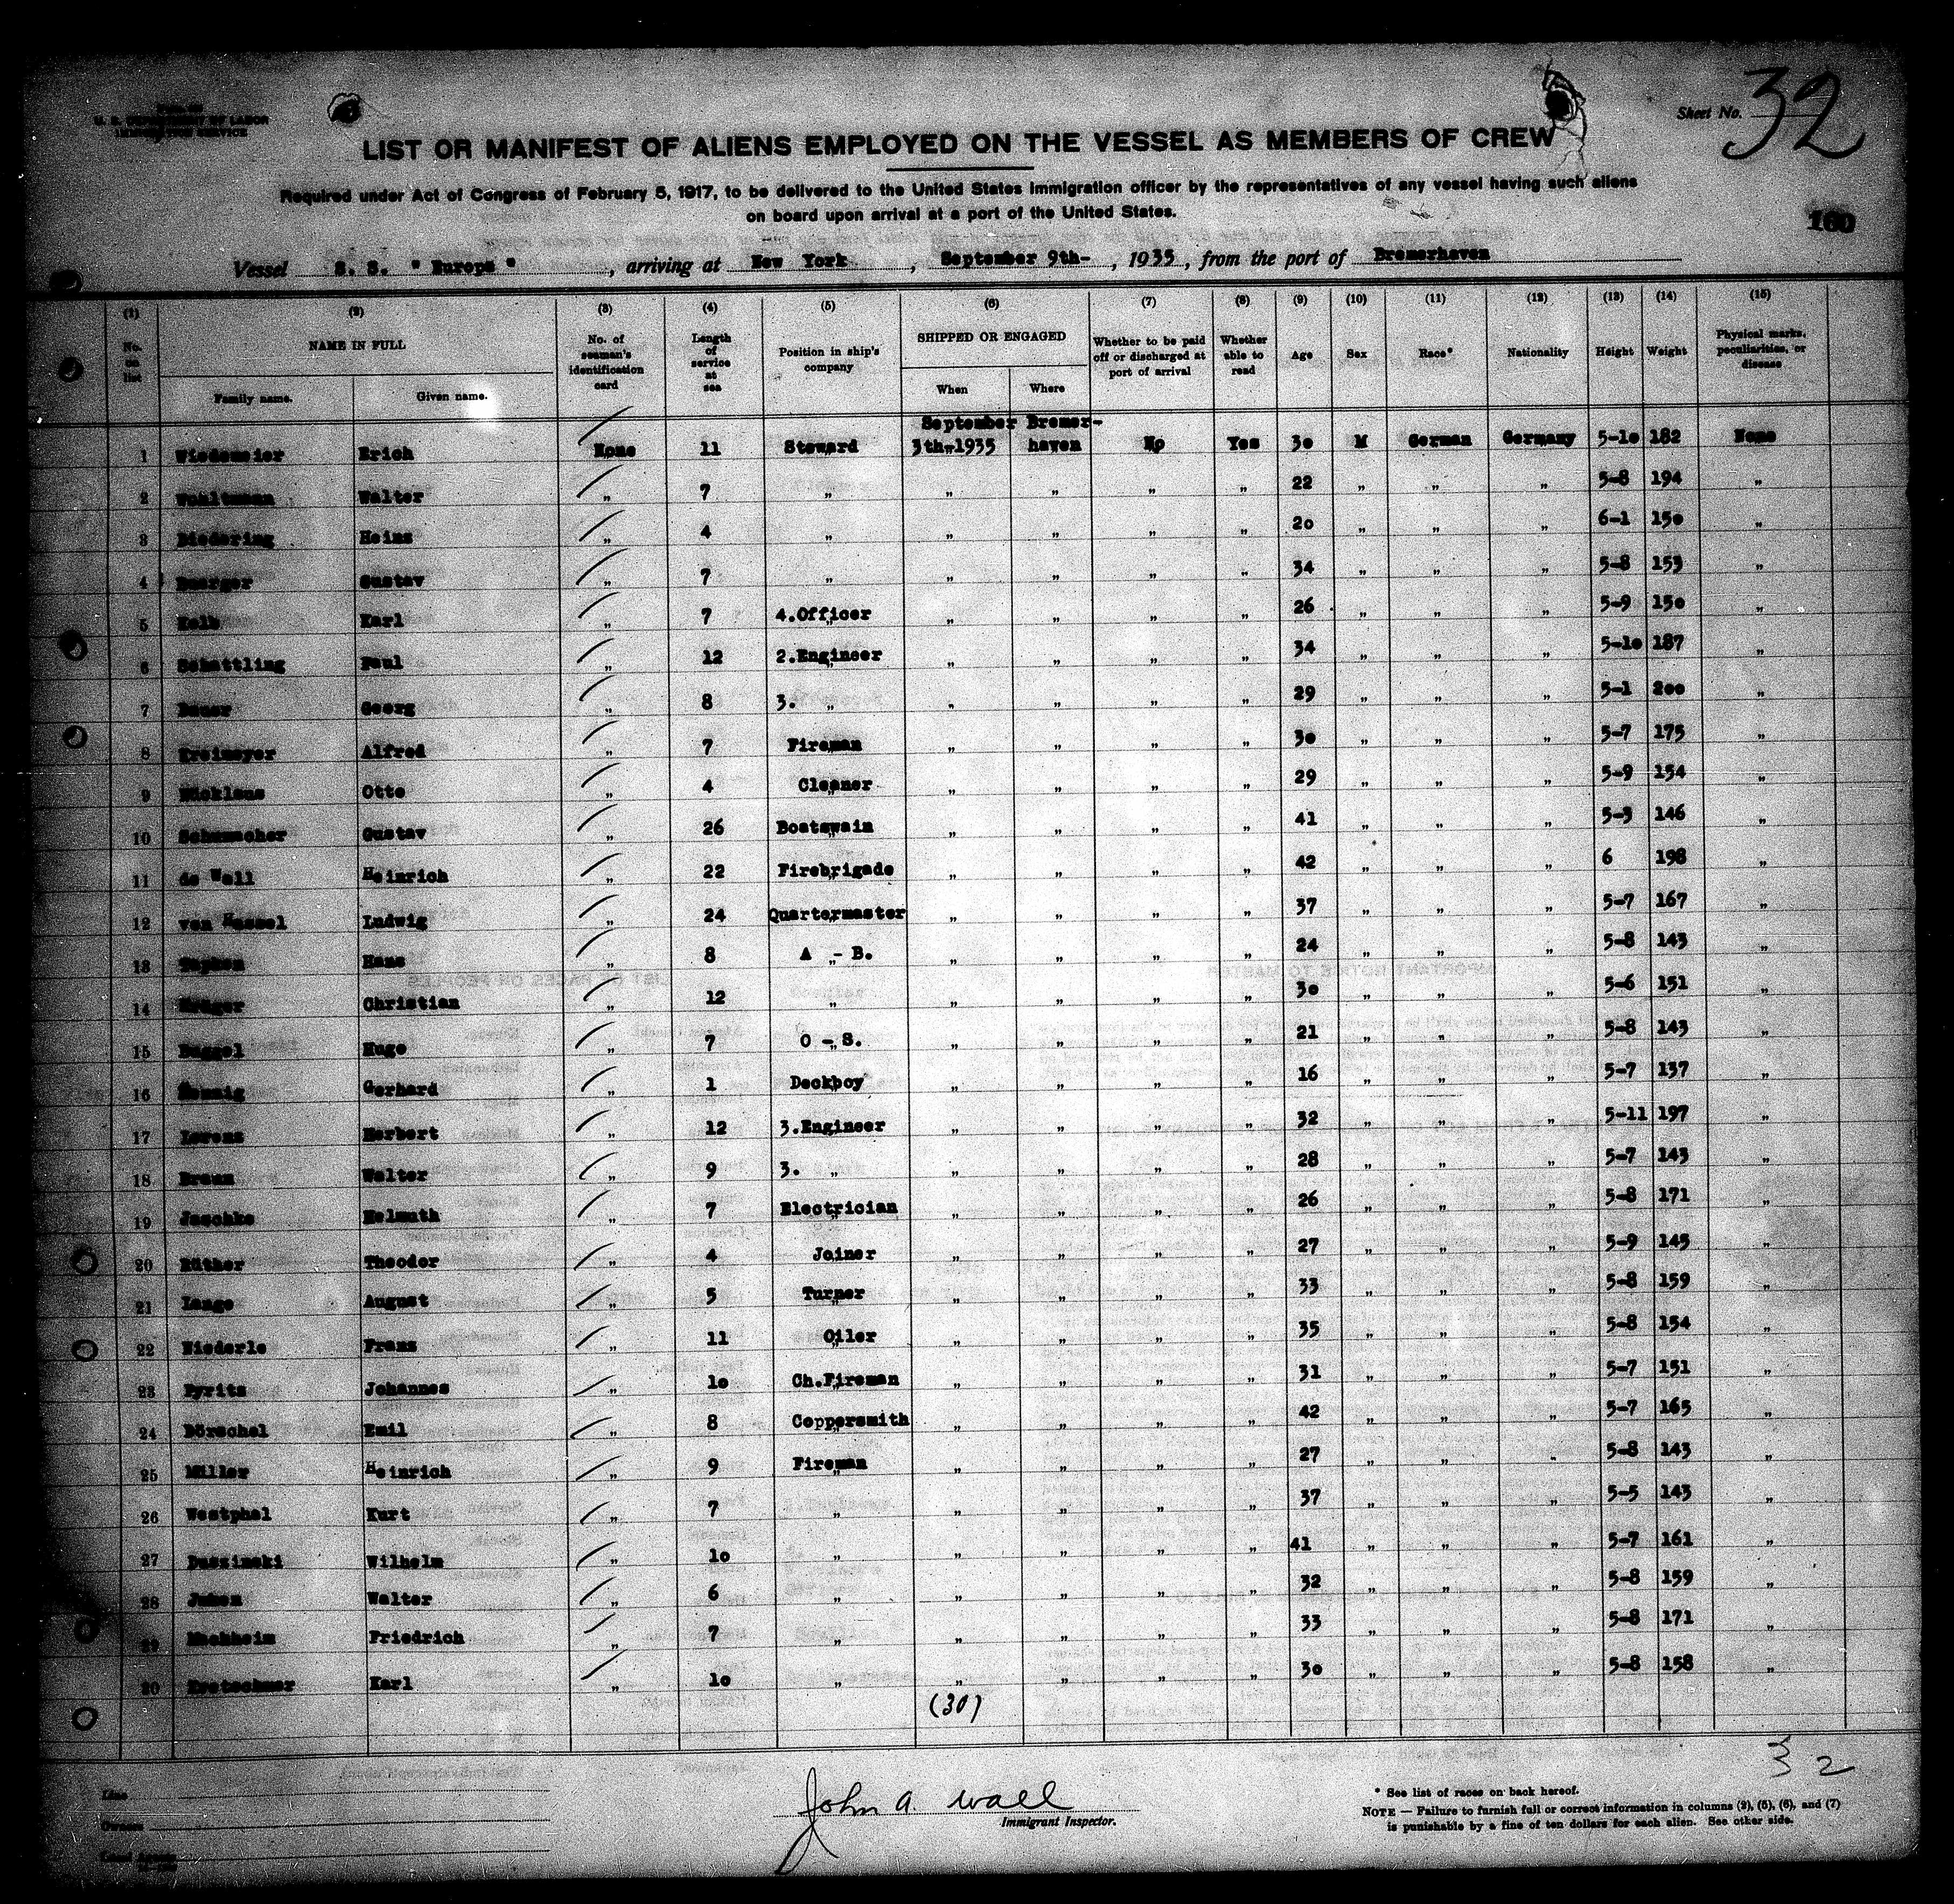 U. S. DEPARTMENT OF LABOR
IMMIGRATION SERVICE
Sheet No. 32
LIST OR MANIFEST OF ALIENS EMPLOYED ON THE VESSEL AS MEMBERS OF CREW
Required under Act of Congress of February 5, 1917, to be delivered to the United States immigration officer by the representatives of any vessel having such aliens
on board upon arrival at a port of the United States.
160
Vessel S. S. " Europa " , arriving at New York , September 9th- , 1935 , from the port of Bremerhaven
(1) (2) (3) (4) (5) (6) (7) (8) (9) (10) (11) (12) (13) (14) (15)
No. on list NAME IN FULL Family name. Given name. No. of seaman's identification card Length of service at sea Position in ship's company SHIPPED OR ENGAGED When Where Whether to be paid off or discharged at port of arrival Whether able to read Age Sex Race* Nationality Height Weight Physical marks, peculiarities, or disease
September Bremer-
1 Wiedemeier Erich None 11 Steward 3th-1935 haven No Yes 30 M German Germany 5-10 182 None
2 Wohltmann Walter " 7 " " " " " 22 " " " 5-8 194 "
3 Diedering Heinz " 4 " " " " " 20 " " " 6-1 150 "
4 Buerger Gustav " 7 " " " " " 34 " " " 5-8 153 "
5 Kolb Karl " 7 4.Officer " " " " 26 " " " 5-9 150 "
6 Schattling Paul " 12 2.Engineer " " " " 34 " " " 5-10 187 "
7 Bauer Georg " 8 3. " " " " " 29 " " " 5-1 200 "
8 Kreimeyer Alfred " 7 Fireman " " " " 30 " " " 5-7 175 "
9 Nicklaus Otto " 4 Cleaner " " " " 29 " " " 5-9 154 "
10 Schumacher Gustav " 26 Boatswain " " " " 41 " " " 5-3 146 "
11 de Wall Heinrich " 22 Firebrigade " " " " 42 " " " 6 198 "
12 von Hassel Ludwig " 24 Quartermaster " " " " 37 " " " 5-7 167 "
13 Hans " 8 A - B. " " " " 24 " " " 5-8 143 "
14 Krüger Christian " 12 " " " " " 30 " " " 5-6 151 "
15 Buggel Hugo " 7 O - S. " " " " 21 " " " 5-8 143 "
16 Hennig Gerhard " 1 Deckboy " " " " 16 " " " 5-7 137 "
17 Lorenz Herbert " 12 3.Engineer " " " " 32 " " " 5-11 197 "
18 Braun Walter " 9 3. " " " " " 28 " " " 5-7 143 "
19 Jaschke Helmuth " 7 Electrician " " " " 26 " " " 5-8 171 "
20 Rüther Theodor " 4 Joiner " " " " 27 " " " 5-9 145 "
21 Lange August " 5 Turner " " " " 33 " " " 5-8 159 "
22 Niederle Franz " 11 Oiler " " " " 35 " " " 5-8 154 "
23 Pyritz Johannes " 10 Ch.Fireman " " " " 31 " " " 5-7 151 "
24 Dörschel Emil " 8 Coppersmith " " " " 42 " " " 5-7 165 "
25 Miller Heinrich " 9 Fireman " " " " 27 " " " 5-8 143 "
26 Westphal Kurt " 7 " " " " " 37 " " " 5-5 143 "
27 Wilhelm " 10 " " " " " 41 " " " 5-7 161 "
28 Walter " 6 " " " " " 32 " " " 5-8 159 "
29 Friedrich " 7 " " " " " 33 " " " 5-8 171 "
30 Kretschmer Karl " 10 " " " " " 30 " " " 5-8 158 "
(30)
32
Line
Owners
Local Agents
John A. Wall
Immigrant Inspector.
* See list of races on back hereof.
NOTE — Failure to furnish full or correct information in columns (2), (5), (6), and (7)
is punishable by a fine of ten dollars for each alien. See other side.